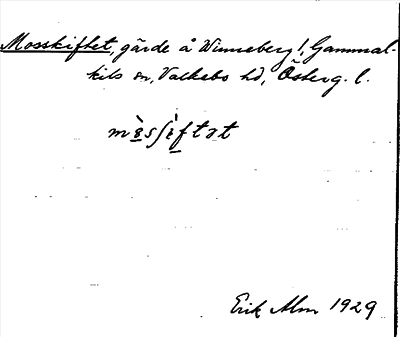 Mosskiftet, gärde å Winneberg!, Gammal-
kils sn, Valkebo hd, Österg. l.
mòsʃìftət
Erik Alm 1929